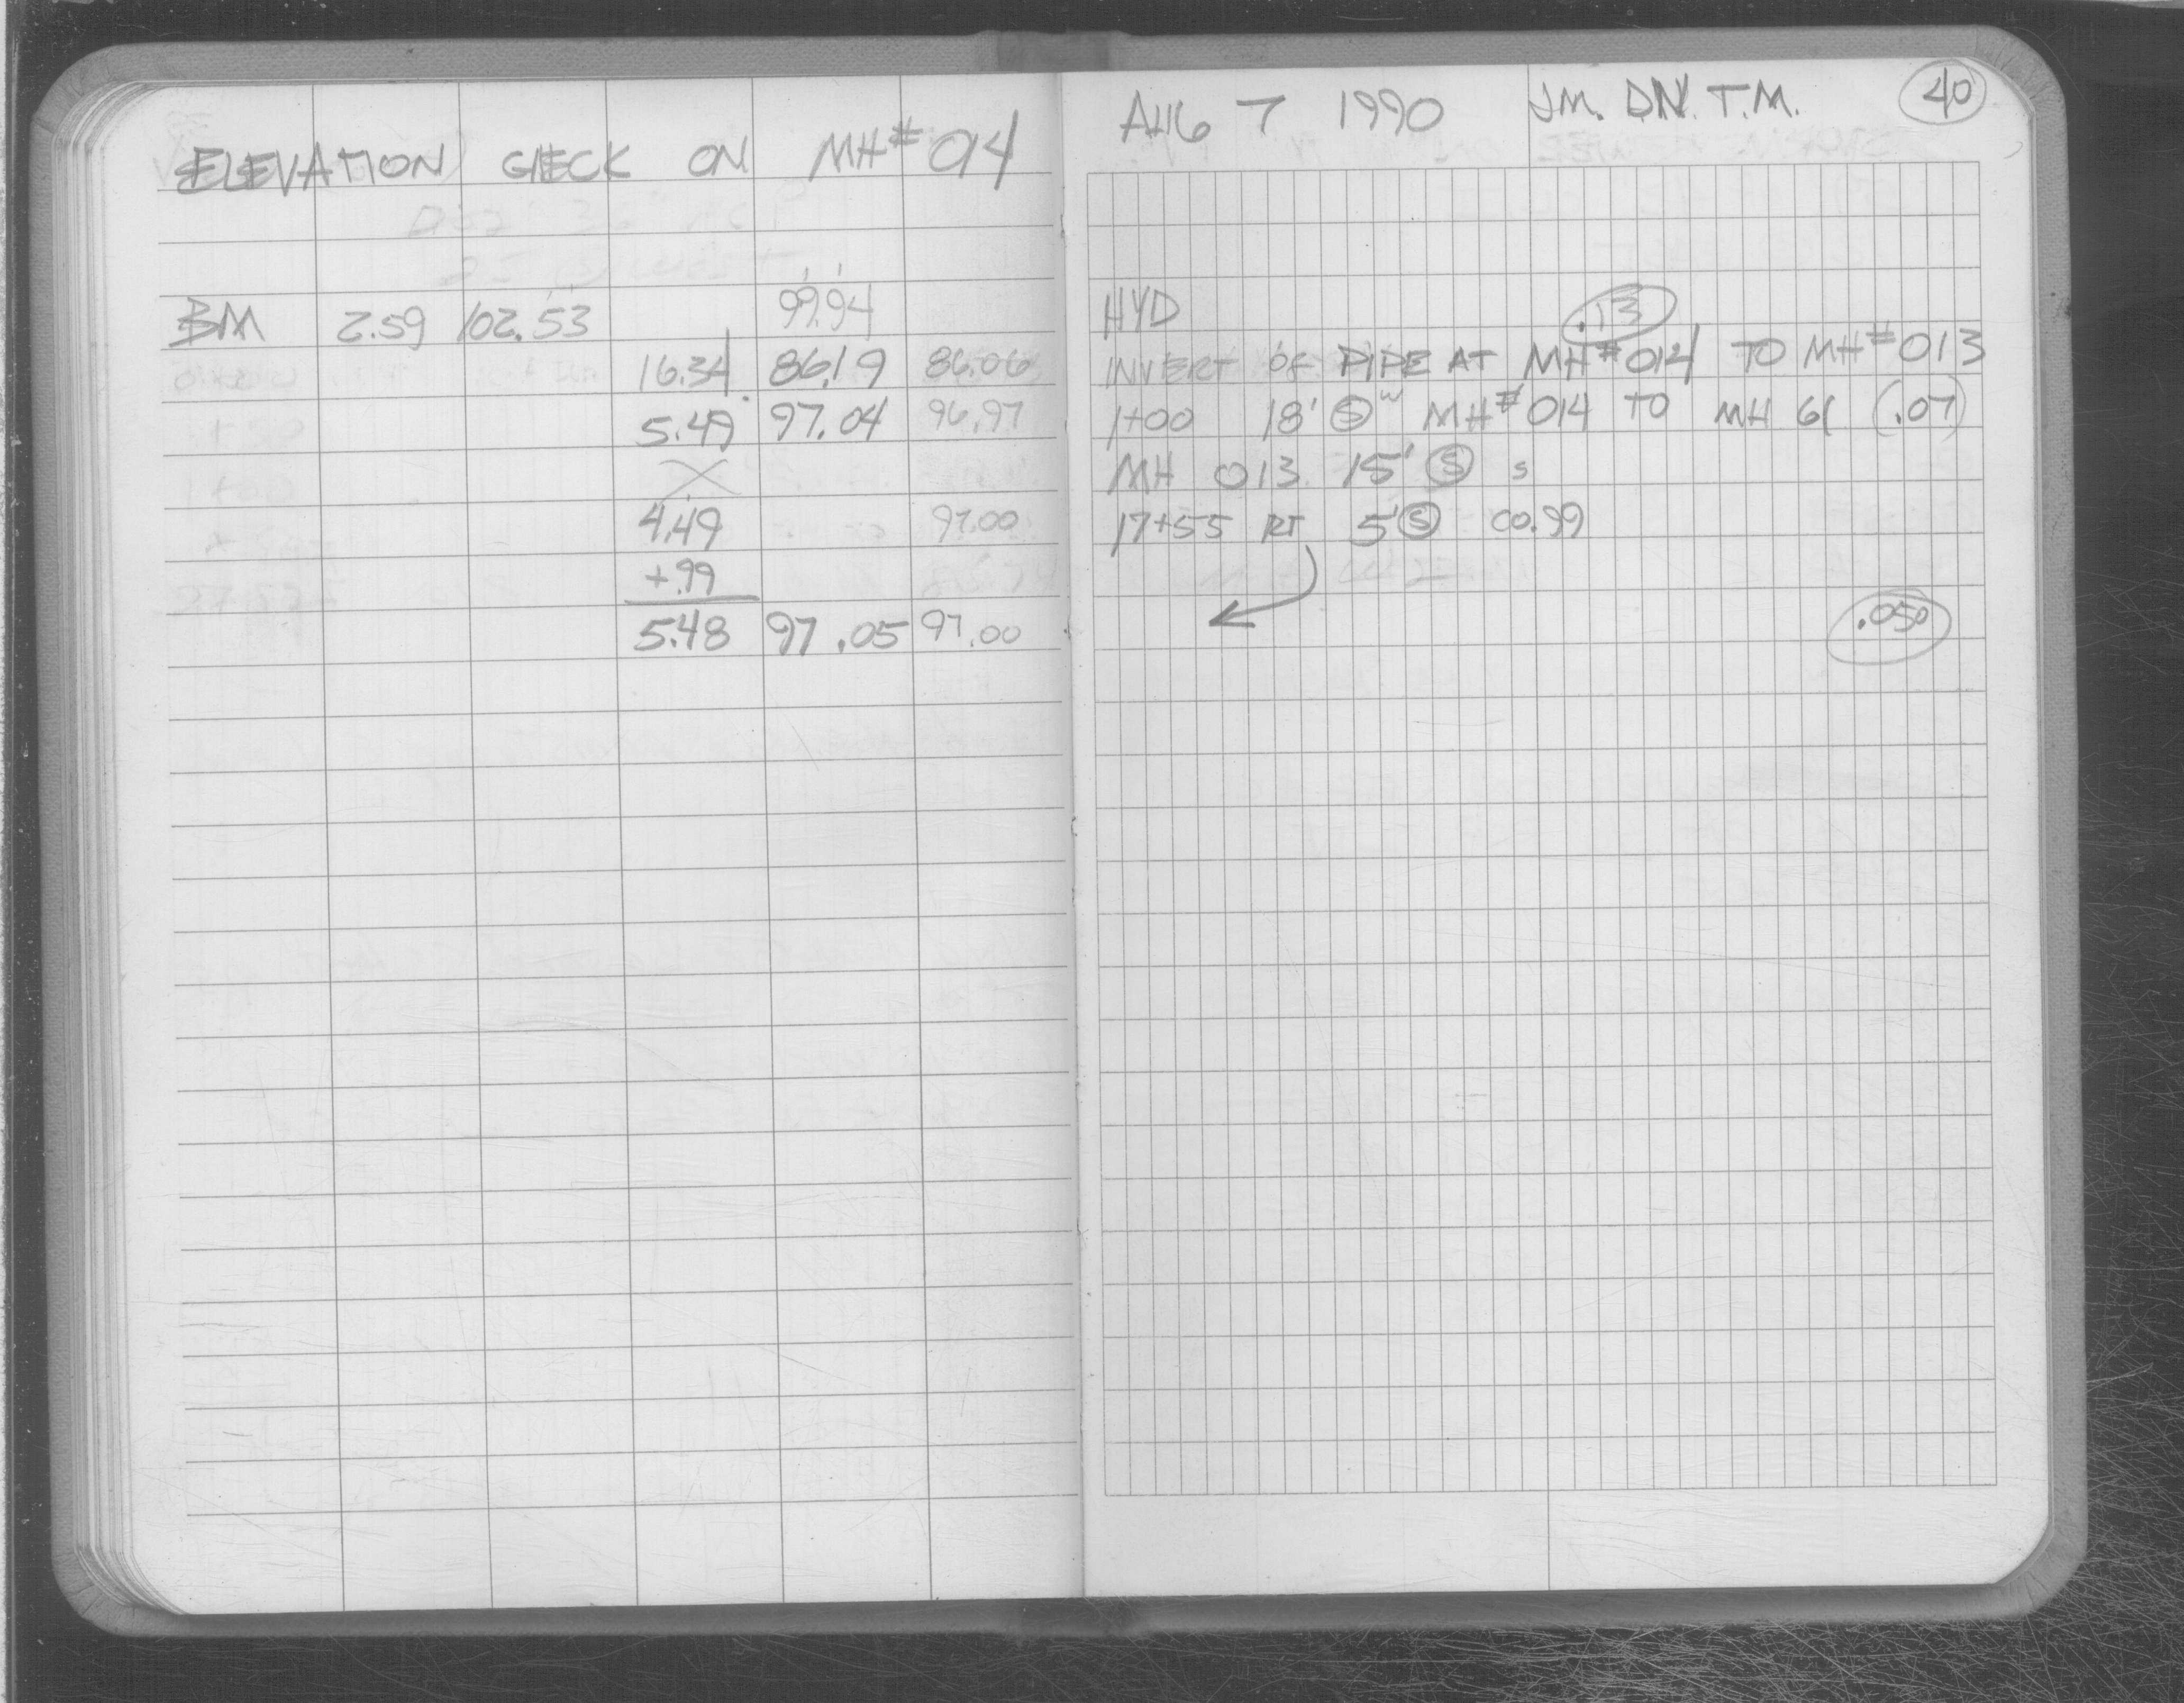 ELEVATION CHECK ON MH# 014
BM 2.59 102.53 99.94
16.34 86.19 86.06
5.49 97.04 96.97
4.49 97.00
+.99
5.48 97.05 97.00
AUG 7 1990 J.M. D.N. T.M. 40
HYD .13
INVERT OF PIPE AT MH# 014 TO MH# 013
1+00 18' S W MH# 014 TO MH 61 (.07)
MH 013 15' S S
17+55 RT 5' S C0.99
.050